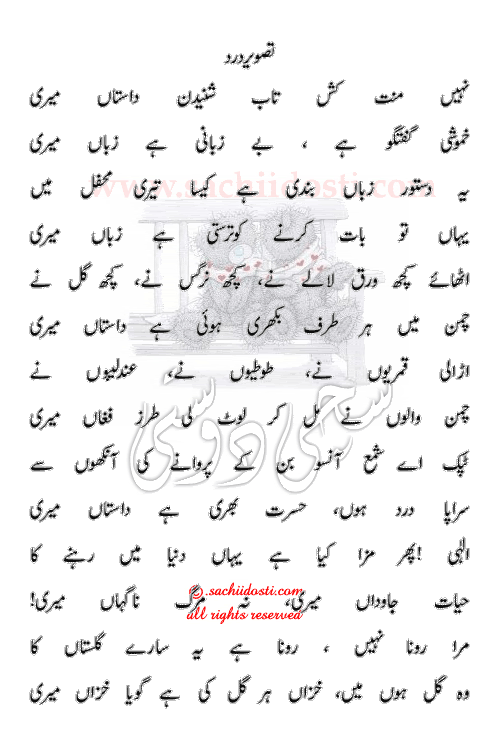 تصویرِ درد
نہیں منت کش تاب شنیدن داستاں میری
خموشی گفتگو ہے ، بے زبانی ہے زباں میری
یہ دستور زباں بندی ہے کیسا تیری محفل میں
یہاں تو بات کرنے کو ترستی ہے زباں میری
اٹھائے کچھ ورق لالے نے، کچھ نرگس نے، کچھ گل نے
چمن میں ہر طرف بکھری ہوئی ہے داستاں میری
اڑالی قمریوں نے، طوطیوں نے، عندلیبوں نے
چمن والوں نے مل کر لوٹ لی طرز فغاں میری
ٹپک اے شمع آنسو بن کے پروانے کی آنکھوں سے
سراپا درد ہوں، حسرت بھری ہے داستاں میری
الٰہی !پھر مزا کیا ہے یہاں دنیا میں رہنے کا
حیات جاوداں میری، نہ مرگ ناگہاں میری!
مرا رونا نہیں ، رونا ہے یہ سارے گلستاں کا
وہ گل ہوں میں، خزاں ہر گل کی ہے گویا خزاں میری
www.sachiidosti.com
سچی دوستی
©.sachiidosti.com
all rights reserved